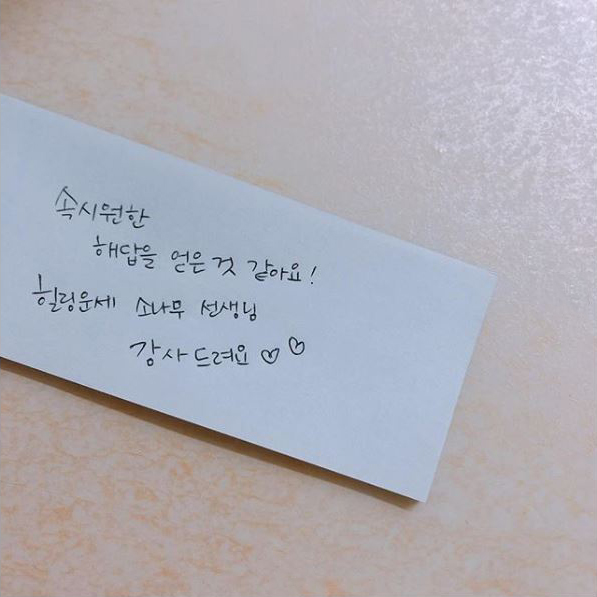 속시원한
해답을 얻은 것 같아요!
힐링운세 소나무 선생님
감사드려요 ♡♡